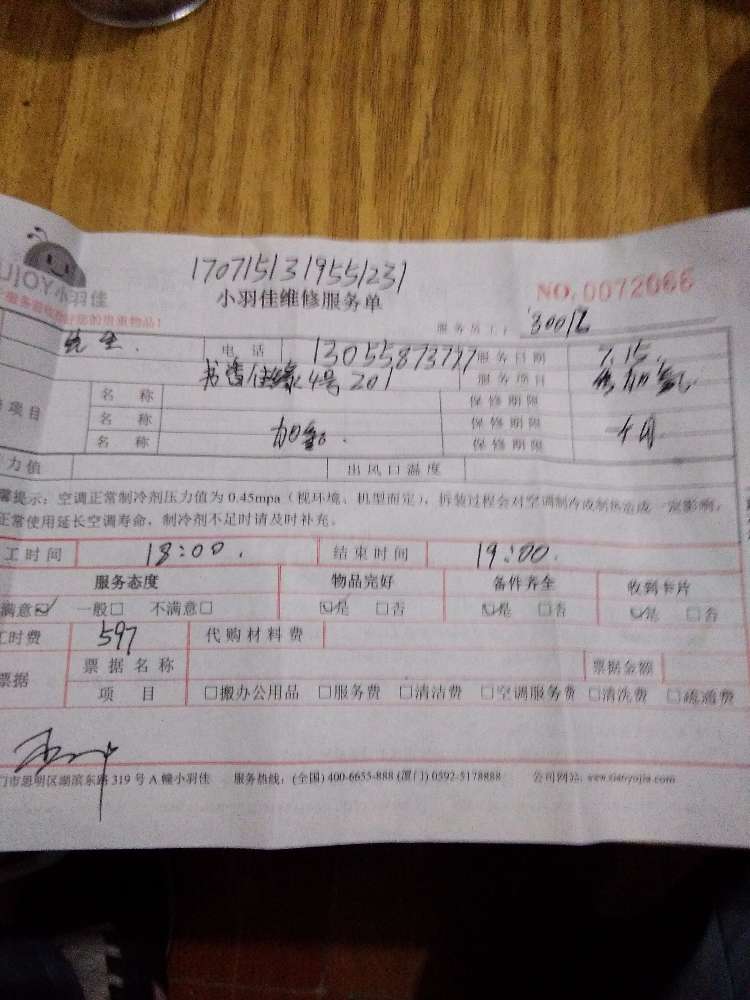 1707151319551231
UJOY小羽佳
小羽佳维修服务单
NO.0072066
您的贵重物品!
服务员工: 30016
先生 电话 13055873777 服务日期 7.15.
4号201 服务项目
项目 名称 保修期限
名称 加氟. 保修期限
名称 保修期限
力值 出风口温度
馨提示:空调正常制冷剂压力值为0.45mpa(视环境、机型而定),拆装过程会对空调制冷或制热造成一定影响,
正常使用延长空调寿命,制冷剂不足时请及时补充。
工时间 18:00. 结束时间 19:00.
服务态度 物品完好 备件齐全 收到卡片
满意☑ 一般□ 不满意□ ☑是 □否 ☑是 □否 ☑是 □否
工时费 597 代购材料费
票据 票据名称 票据金额
项目 □搬办公用品 □服务费 □清洁费 □空调服务费 □清洗费 □疏通费
门市思明区湖滨东路319号A幢小羽佳 服务热线:(全国)400-6655-888(厦门)0592-5178888 公司网站:www.xiaoyujia.com